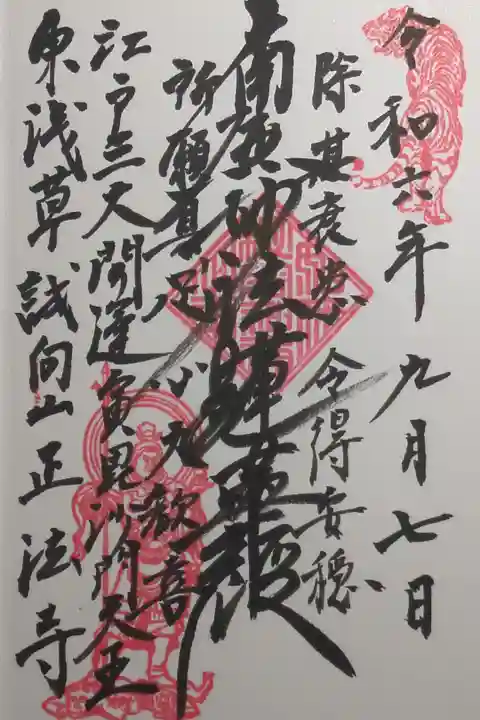 令和六年九月七日
除其衰患令得安穏
南無妙法蓮華経
所願具足心大歓喜
江戸三大開運寅毘沙門天王
東浅草誠向山正法寺